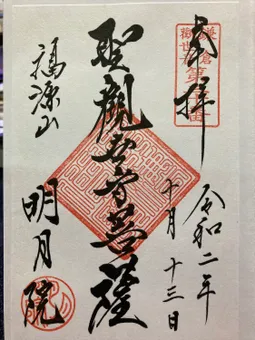 奉拝
鎌倉観世音第三十番
令和二年
十月十三日
聖観世音菩薩
福源山
明月院